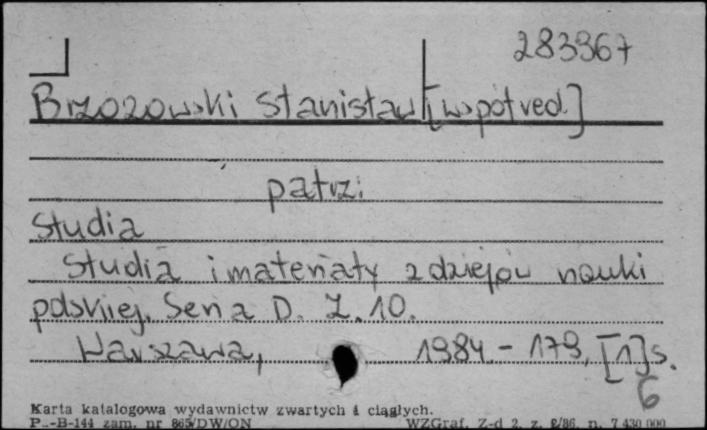 283367
Brzozowski Stanisław [współred.]
patrz:
Studia
Studia i materiały z dziejów nauki
polskiej. Seria D. Z. 10.
Warszawa, 1984 - 179, [1] s.
6
Karta katalogowa wydawnictw zwartych i ciągłych.
zam. nr 865/DW/ON WZGraf. Z-d 2, z. n. 7 430 000